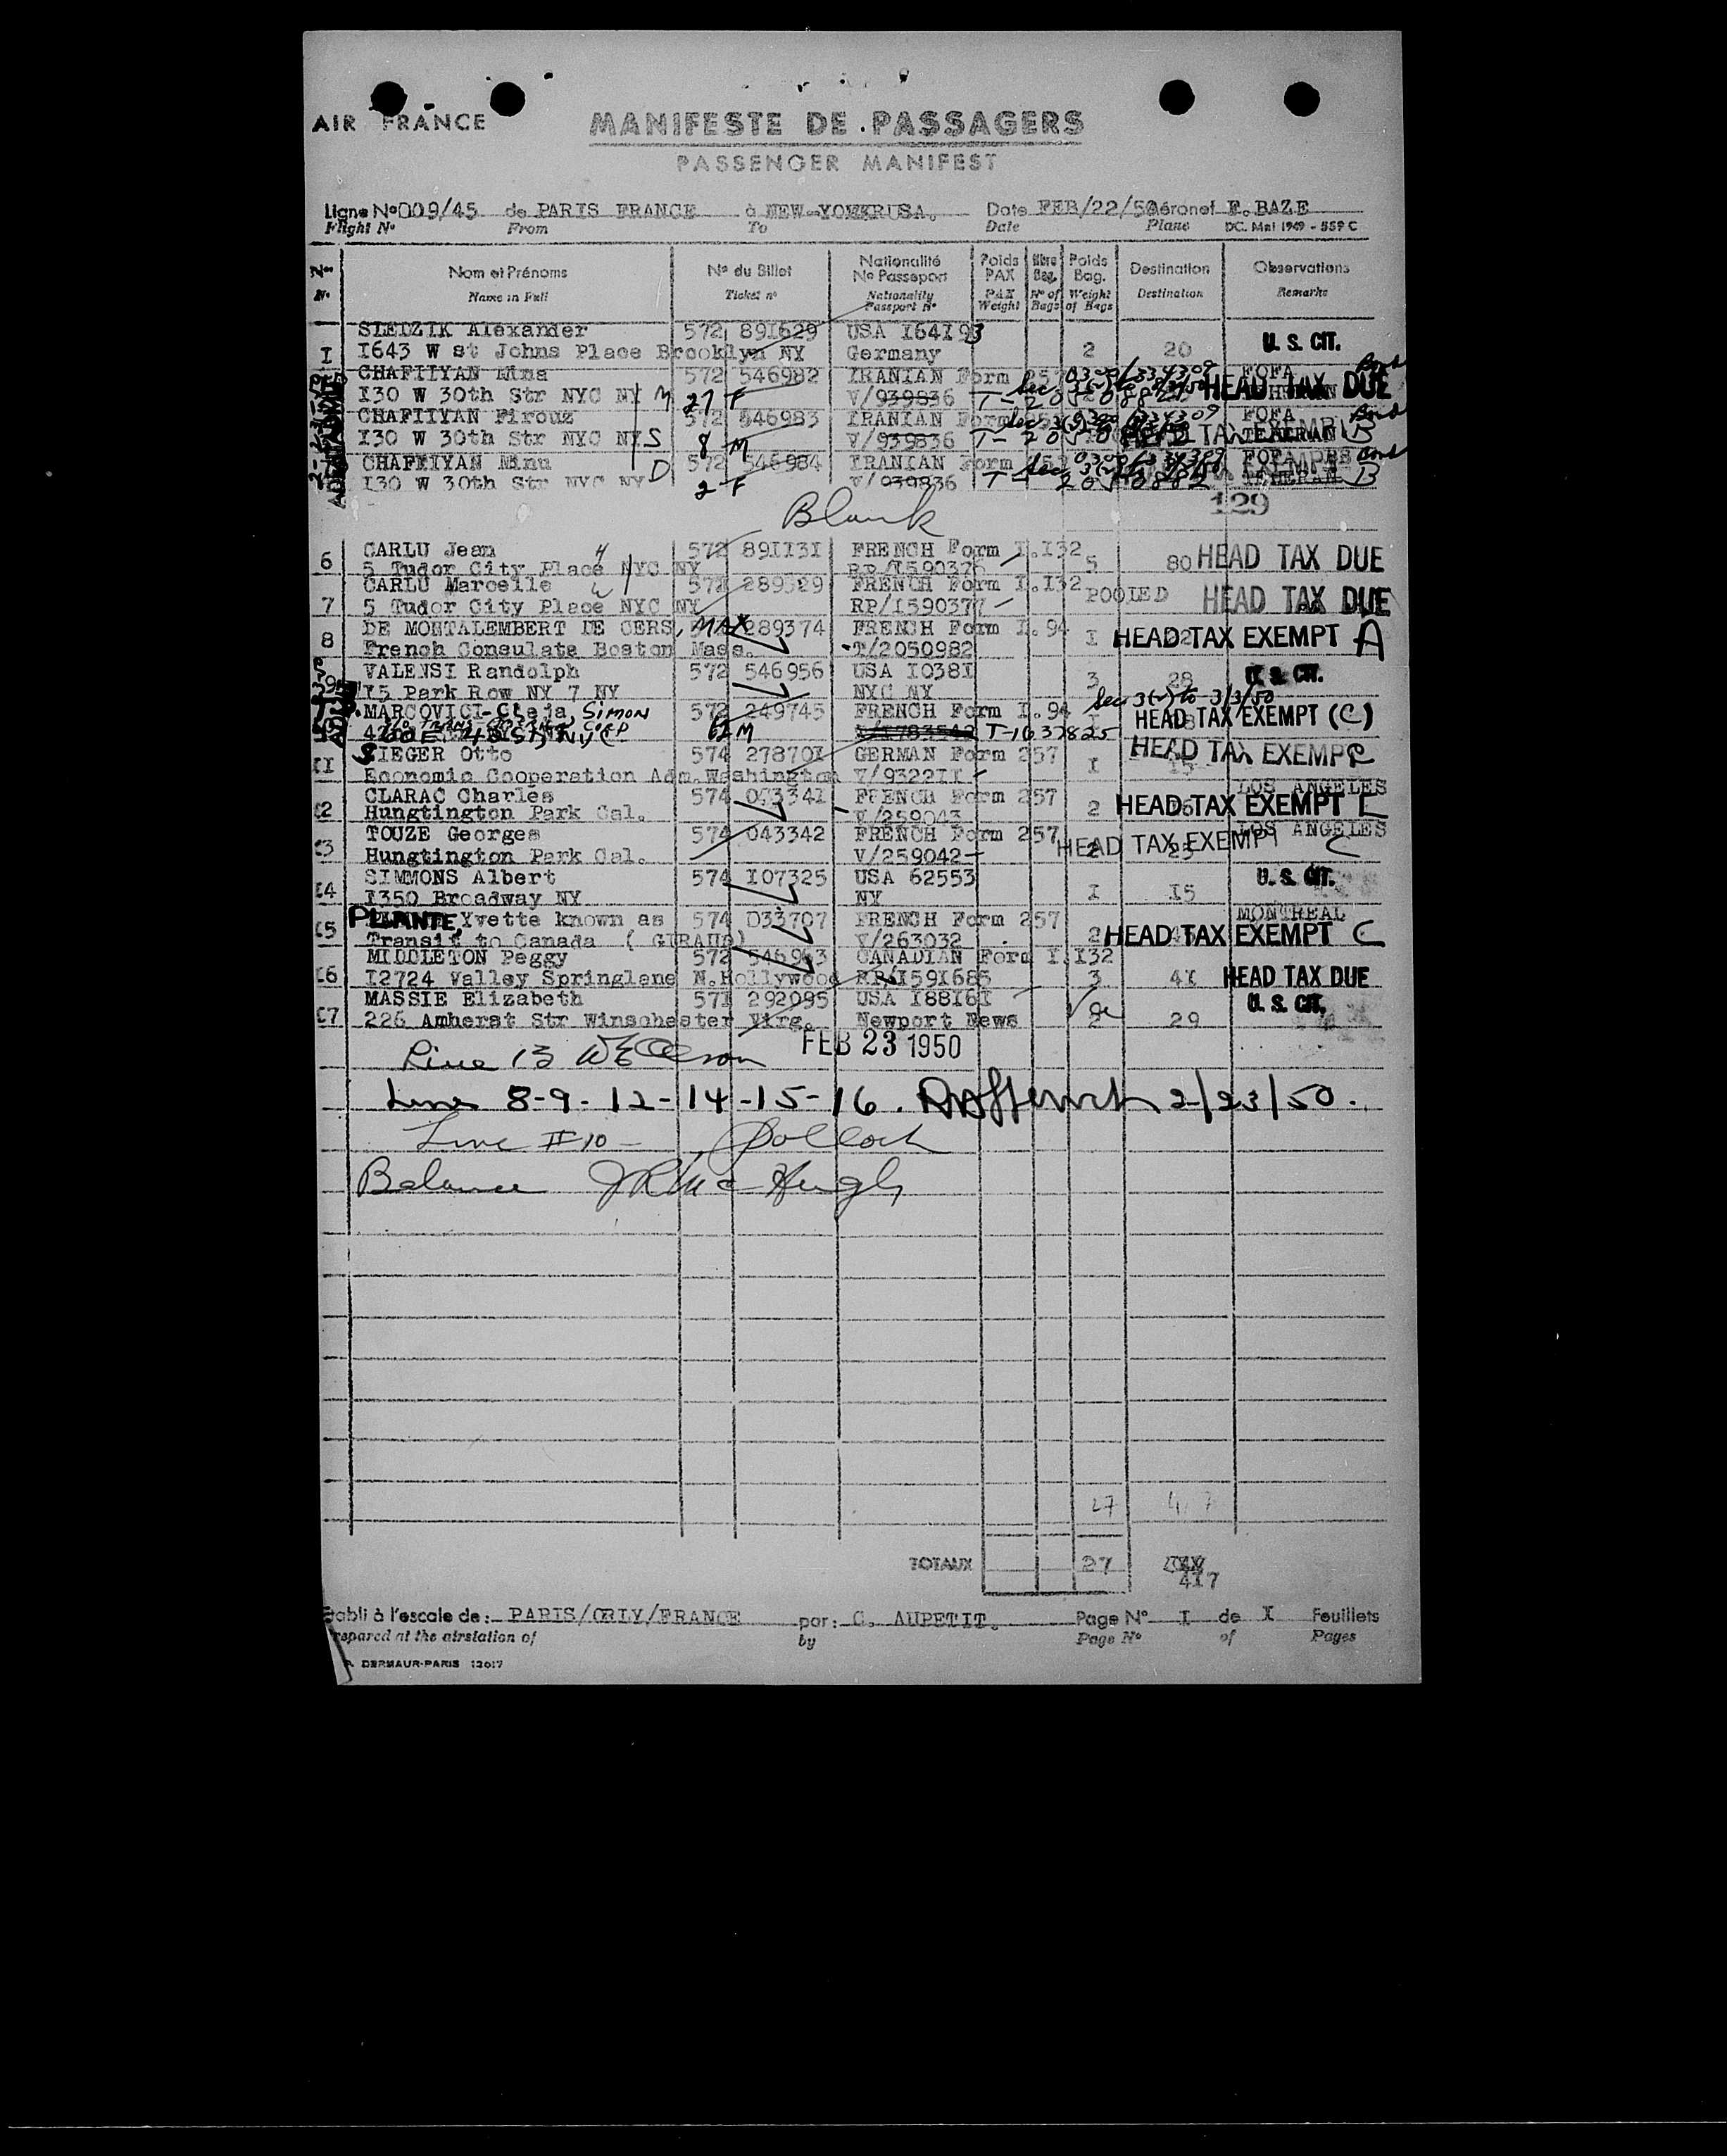 AIR FRANCE
MANIFESTE DE PASSAGERS
PASSENGER MANIFEST
Ligne No 009/45 de PARIS FRANCE à NEW-YORK USA. Date FEB/22/50 Aéronef F.BAZE
Flight No From To Date Plane DC. Mai 1949 - 559 C
No Nom et Prénoms No du Billet Nationalité No Passeport Poids PAX Nbre Bag. Poids Bag. Destination Observations
No Name in Full Ticket no Nationality Passport No PAX Weight No of Bags Weight of Bags Destination Remarks
SLEDZIK Alexander 572 891629 USA I64I93
I I643 W st Johns Place Brooklyn NY Germany 2 20 U. S. CIT.
CHAFIIYAN Mina 572 546982 IRANIAN Form 257 0300/334309 FOFA Bond
I30 W 30th Str NYC NY M 27 F V/939836 T-2050882 HEAD TAX DUE
CHAFIIYAN Firouz 572 546983 IRANIAN Form 0300/334309 FOFA Bond
I30 W 30th Str NYC NY S 8 M V/939836 HEAD TAX EXEMPT TEHERAN B
CHAFIIYAN Minu 572 546984 IRANIAN Form 0300/334309 FOFA Bond
I30 W 30th Str NYC NY D 2 F V/939836 T-2050882 TEHERAN B
129
Blank
CARLU Jean H 572 89II3I FRENCH Form I.I32
6 5 Tudor City Place NYC NY RP/I590376 5 80 HEAD TAX DUE
CARLU Marcelle W 571 289329 FRENCH Form I.I32
7 5 Tudor City Place NYC NY RP/I590377 POOLED HEAD TAX DUE
DE MONTALEMBERT DE CERS, MAX 289374 FRENCH Form I.94
8 French Consulate Boston Mass. T/2050982 I HEAD TAX EXEMPT A
VALENSI Randolph 572 546956 USA I038I
9 I5 Park Row NY 7 NY NYC NY 3 28 U. S. CIT.
Sec 3(2) to 3/3/50
MARCOVICI-Cleja Simon 572 249745 FRENCH Form I.94 I HEAD TAX EXEMPT (C)
60 E 42 St NYC 62 M T-1637825
SIEGER Otto 574 27870I GERMAN Form 257 HEAD TAX EXEMPT C
II Economic Cooperation Adm.Washington V/9322II I I5
CLARAC Charles 574 043341 FRENCH Form 257 LOS ANGELES
I2 Hungtington Park Cal. V/259043 2 HEAD TAX EXEMPT C
TOUZE Georges 574 043342 FRENCH Form 257 LOS ANGELES
I3 Hungtington Park Cal. V/259042 2 25 HEAD TAX EXEMPT C
SIMMONS Albert 574 I07325 USA 62553 U. S. CIT.
I4 I350 Broadway NY NY I I5
PLANTE, Yvette known as 574 033707 FRENCH Form 257 MONTREAL
I5 Transit to Canada ( GIRAUD) V/263032 2 HEAD TAX EXEMPT C
MIDDLETON Peggy 572 546963 CANADIAN Form I.I32
I6 I2724 Valley Springlane N.Hollywood RP/I591685 3 4I HEAD TAX DUE
MASSIE Elizabeth 571 292095 USA I88I6I U. S. CIT.
I7 226 Amherst Str Winschester Virg. Newport News 2 29
Line 13 FEB 23 1950
Lines 8-9-12-14-15-16. 2/23/50.
Line # 10 - Pollock
Balance J R McHugh
27 417
TOTAUX 27 417
Etabli à l'escale de: PARIS/ORLY/FRANCE par: C. AUPETIT. Page No I de I Feuillets
Prepared at the airstation of by Page No of Pages
DERMAUR-PARIS 12017